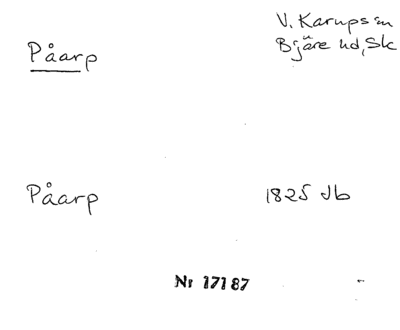 Påarp
V. Karups sn
Bjäre hd, Sk
Påarp
1825 Jb
Nr 17187